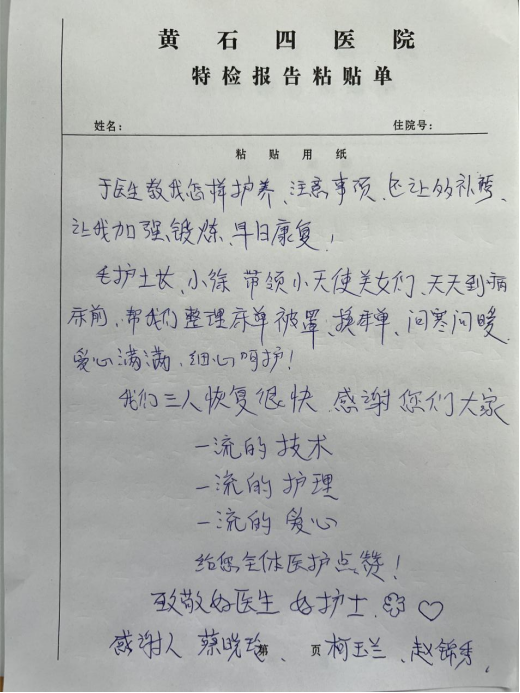 黄石四医院
特检报告粘贴单
姓名： 住院号：
粘贴用纸
于医生教我怎样护养、注意事项、还让多补钙、
让我加强锻炼、早日康复！
毛护士长、小徐 带领小天使美女们、天天到病
床前，帮我们整理床单被罩、换床单、问寒问暖、
爱心满满、细心呵护！
我们三人恢复很快 感谢您们大家
一流的技术
一流的护理
一流的爱心
给您全体医护点赞！
致敬好医生 好护士
感谢人 蔡晓玲、 柯玉兰、赵锦秀
第 页